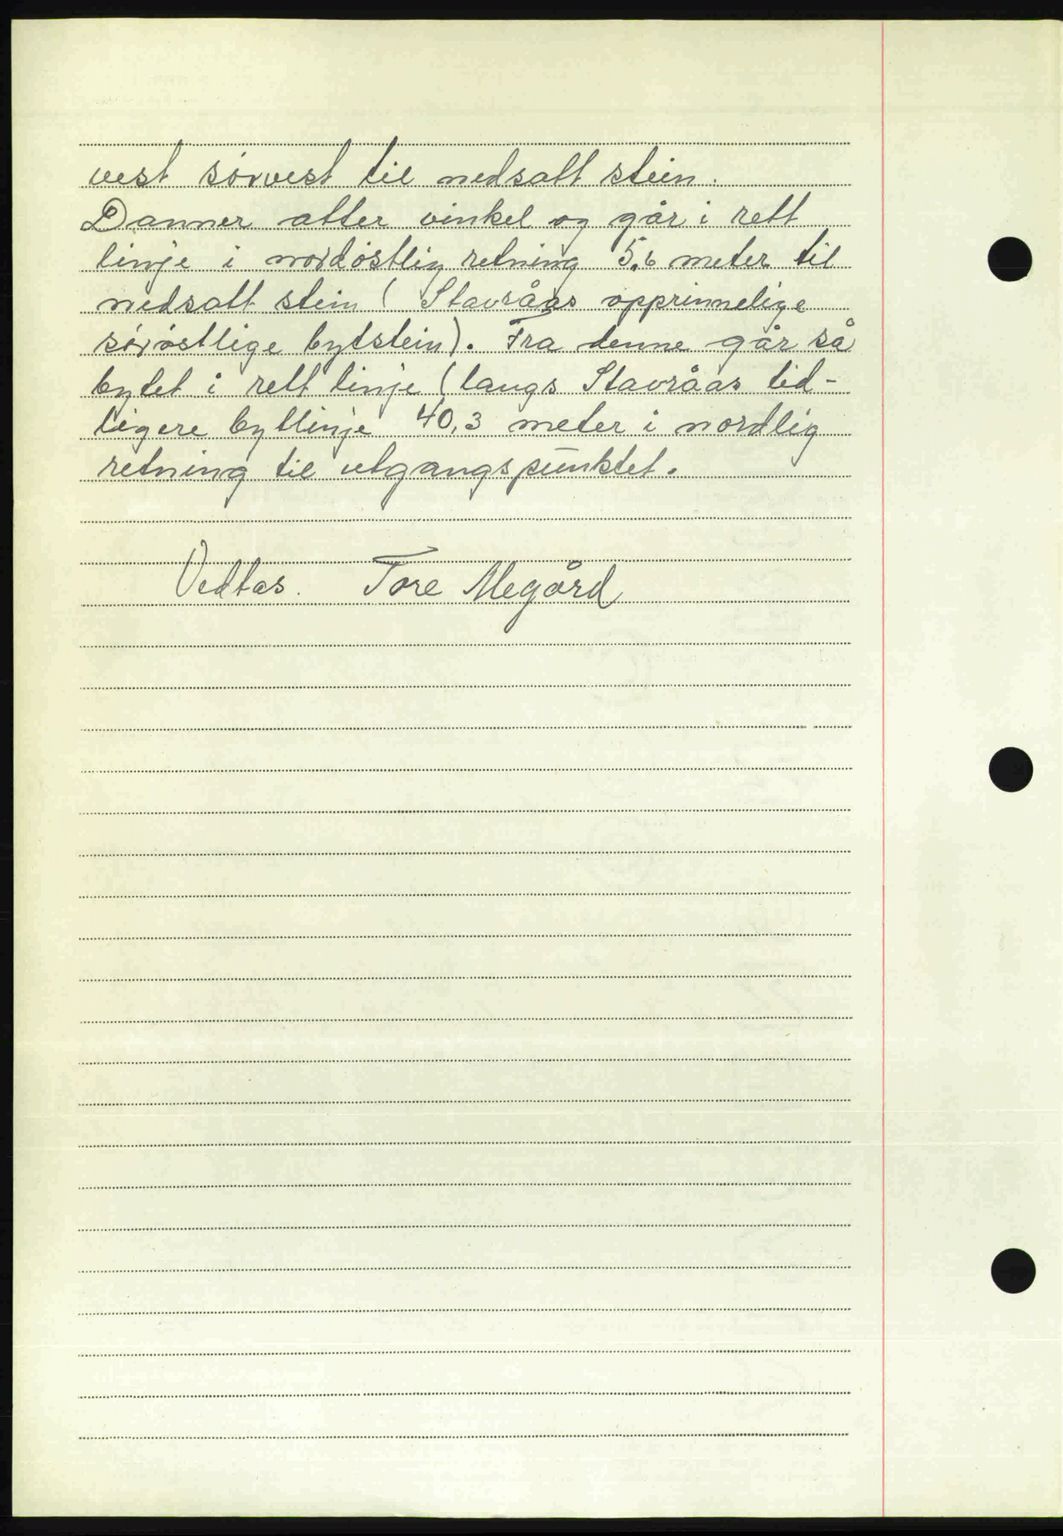 vest sørvest til nedsatt stein.
Danner atter vinkel og går i rett
linje i nordøstlig retning 5,6 meter til
nedsatt stein ( Stavråas opprinnelige
sørøstlige bytstein). Fra denne går så
bytet i rett linje (langs Stavråas tid-
ligere bytlinje 40,3 meter i nordlig
retning til utgangspunktet.
Vedtas. Tore Megård